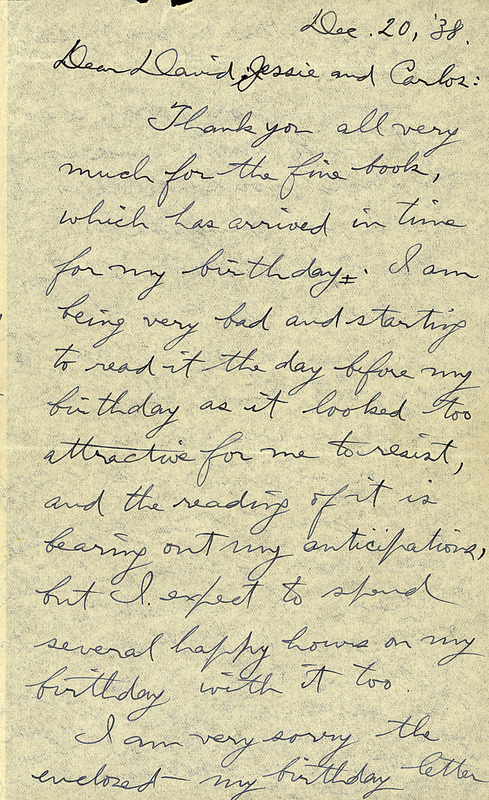 Dec. 20, '38.
Dear David, Jessie and Carlos:
Thank you all very
much for the fine book,
which has arrived in time
for my birthday ±. I am
being very bad and starting
to read it the day before my
birthday as it looked too
attractive for me to resist,
and the reading of it is
bearing out my anticipations,
but I expect to spend
several happy hours on my
birthday with it too.
I am very sorry the
enclosed my birthday letter